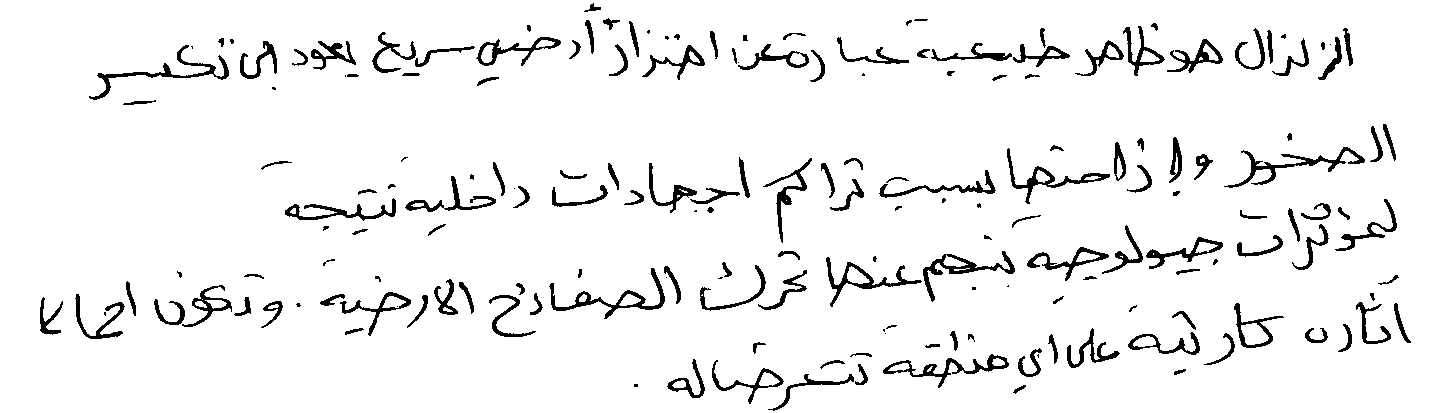 الزلزال هو ظاهر طبيعية عبارة عن اهتزاز أرضي سريع يعود الى تكسير
الصخور وإزاحتها بسبب تراكم اجهادات داخلية نتيجة
لمؤثرات جيولوجية ينجم عنها تحرك الصفائح الارضية . وتكون احيانا
آثاره كارثية على اي منطقة تتعرضاله .